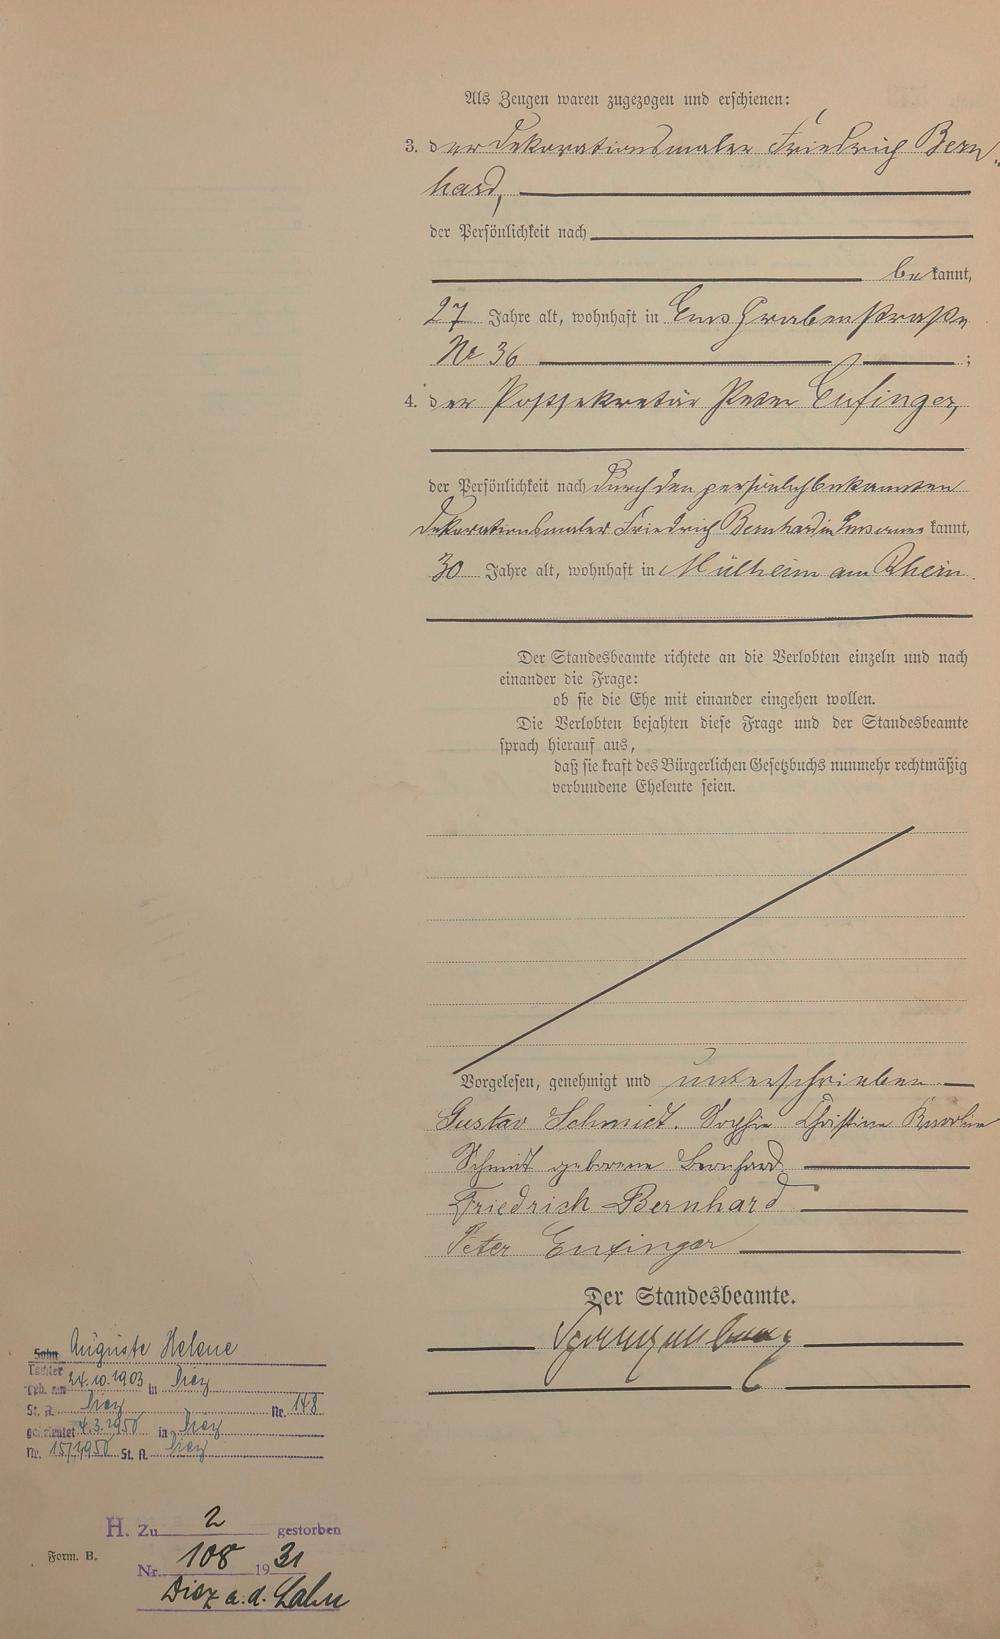 Als Zeugen waren zugezogen und erschienen:
3. der Dekorationsmaler Friedrich Bern-
hard,
der Persönlichkeit nach
be kannt,
27 Jahre alt, wohnhaft in Ems Grabenstraße
Nr 36 ;
4. der Postsekretär Peter Eufinger,
der Persönlichkeit nach durch den persönlich bekannten
Dekorationsmaler Friedrich Bernhard in Ems aner kannt,
30 Jahre alt, wohnhaft in Mülheim am Rhein.
Der Standesbeamte richtete an die Verlobten einzeln und nach
einander die Frage:
ob sie die Ehe mit einander eingehen wollen.
Die Verlobten bejahten diese Frage und der Standesbeamte
sprach hierauf aus,
daß sie kraft des Bürgerlichen Gesetzbuchs nunmehr rechtmäßig
verbundene Eheleute seien.
Vorgelesen, genehmigt und unterschrieben.
Gustav Schmidt. Sophie Christine Karoline
Schmidt geborene Bernhard
Friedrich Bernhard
Peter Eufinger
Der Standesbeamte.
Sohn Auguste Helene
Tochter
geb. am 24.10.1903 in Diez
St. A. Diez Nr. 148
geheiratet 4.3.1950 in Diez
Nr. 15/1950 St. A. Diez
H. Zu 2 gestorben
Form. B.
Nr. 108 1931
Diez a.d. Lahn